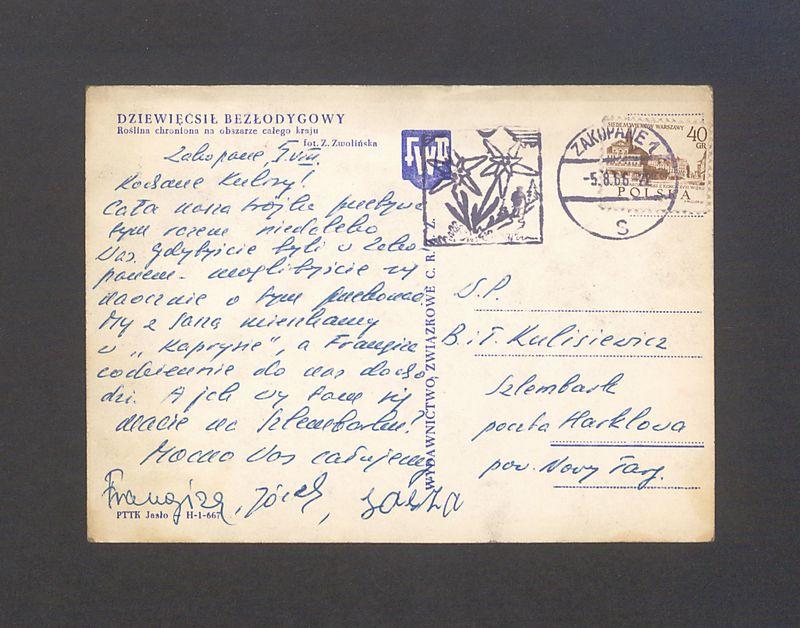 DZIEWIĘĆSIŁ BEZŁODYGOWY
Roślina chroniona na obszarze całego kraju
fot. Z. Zwolińska
Zakopane, 5.VIII.
Kochane Kulisy!
Cała nasza trójka przebywa
tym razem niedaleko
Was. Gdybyście byli w Zako-
panem - moglibyście się
naocznie o tym przekonać
My z Saszą mieszkamy
w "Kaprysie", a Franzisa
codziennie do nas docho-
dzi. A jak wy tam się
macie na Szlembarku?
Mocno Was całujemy
Józek, Sasza
PTTK Jasło H-1-667
WYDAWNICTWO ZWIĄZKOWE C. R. Z. Z.
FWP
ZAKOPANE 1
-5.8.66
S
SIEDEM WIEKÓW WARSZAWY
40
GR
POLSKA
S.P.
B. i T. Kulisiewicz
Szlembark
poczta Harklowa
pow. Nowy Targ.